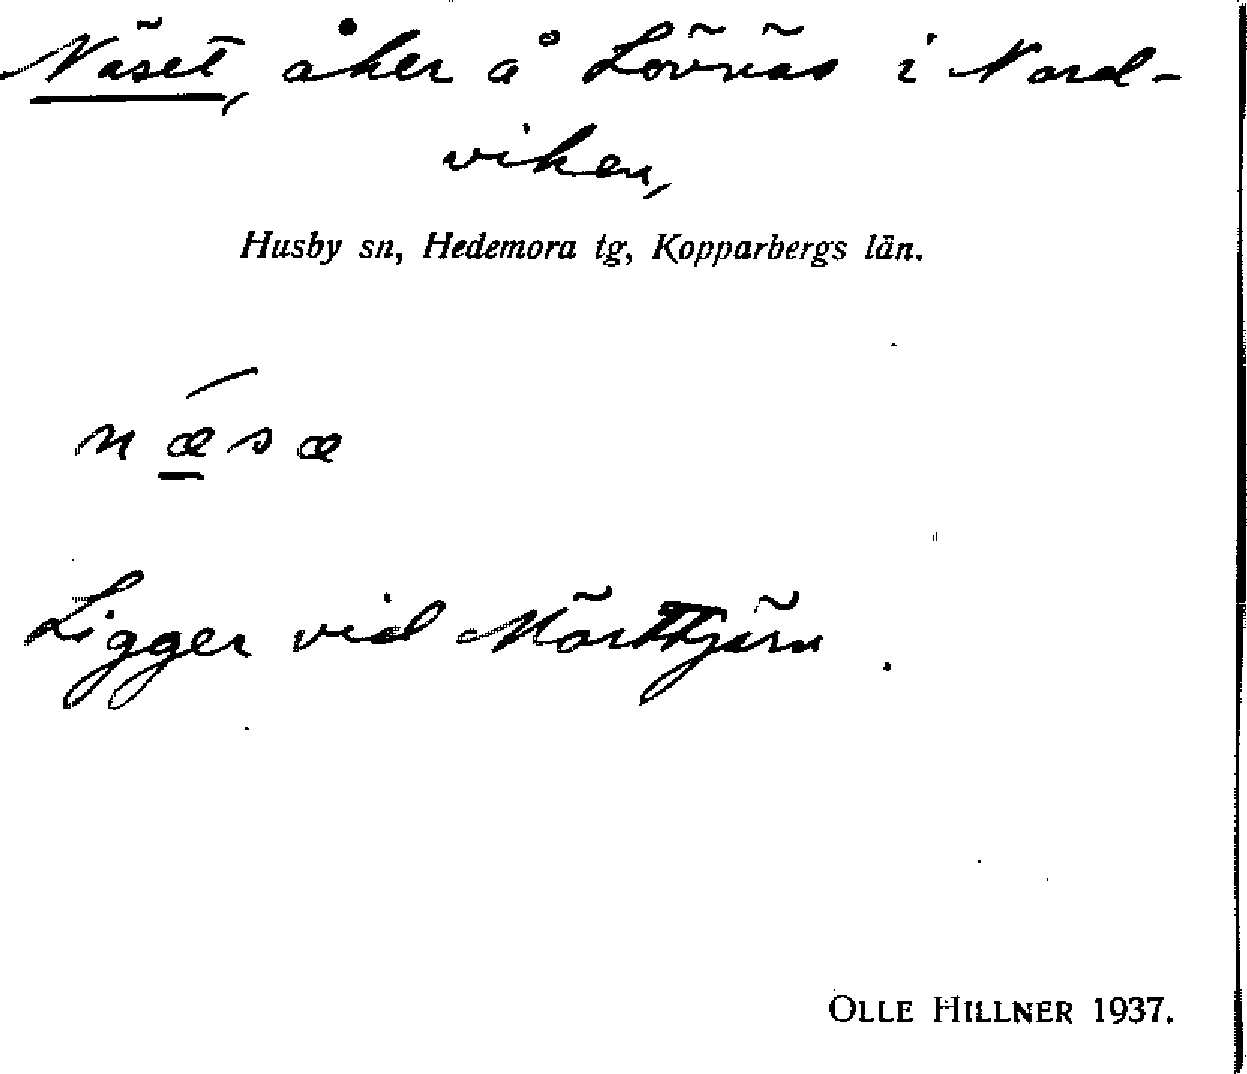 Näset, åker å Lövnäs i Nord-
viken,
Husby sn, Hedemora tg, Kopparbergs län.
næsæ
Ligger vid Mörttjärn.
OLLE HILLNER 1937.